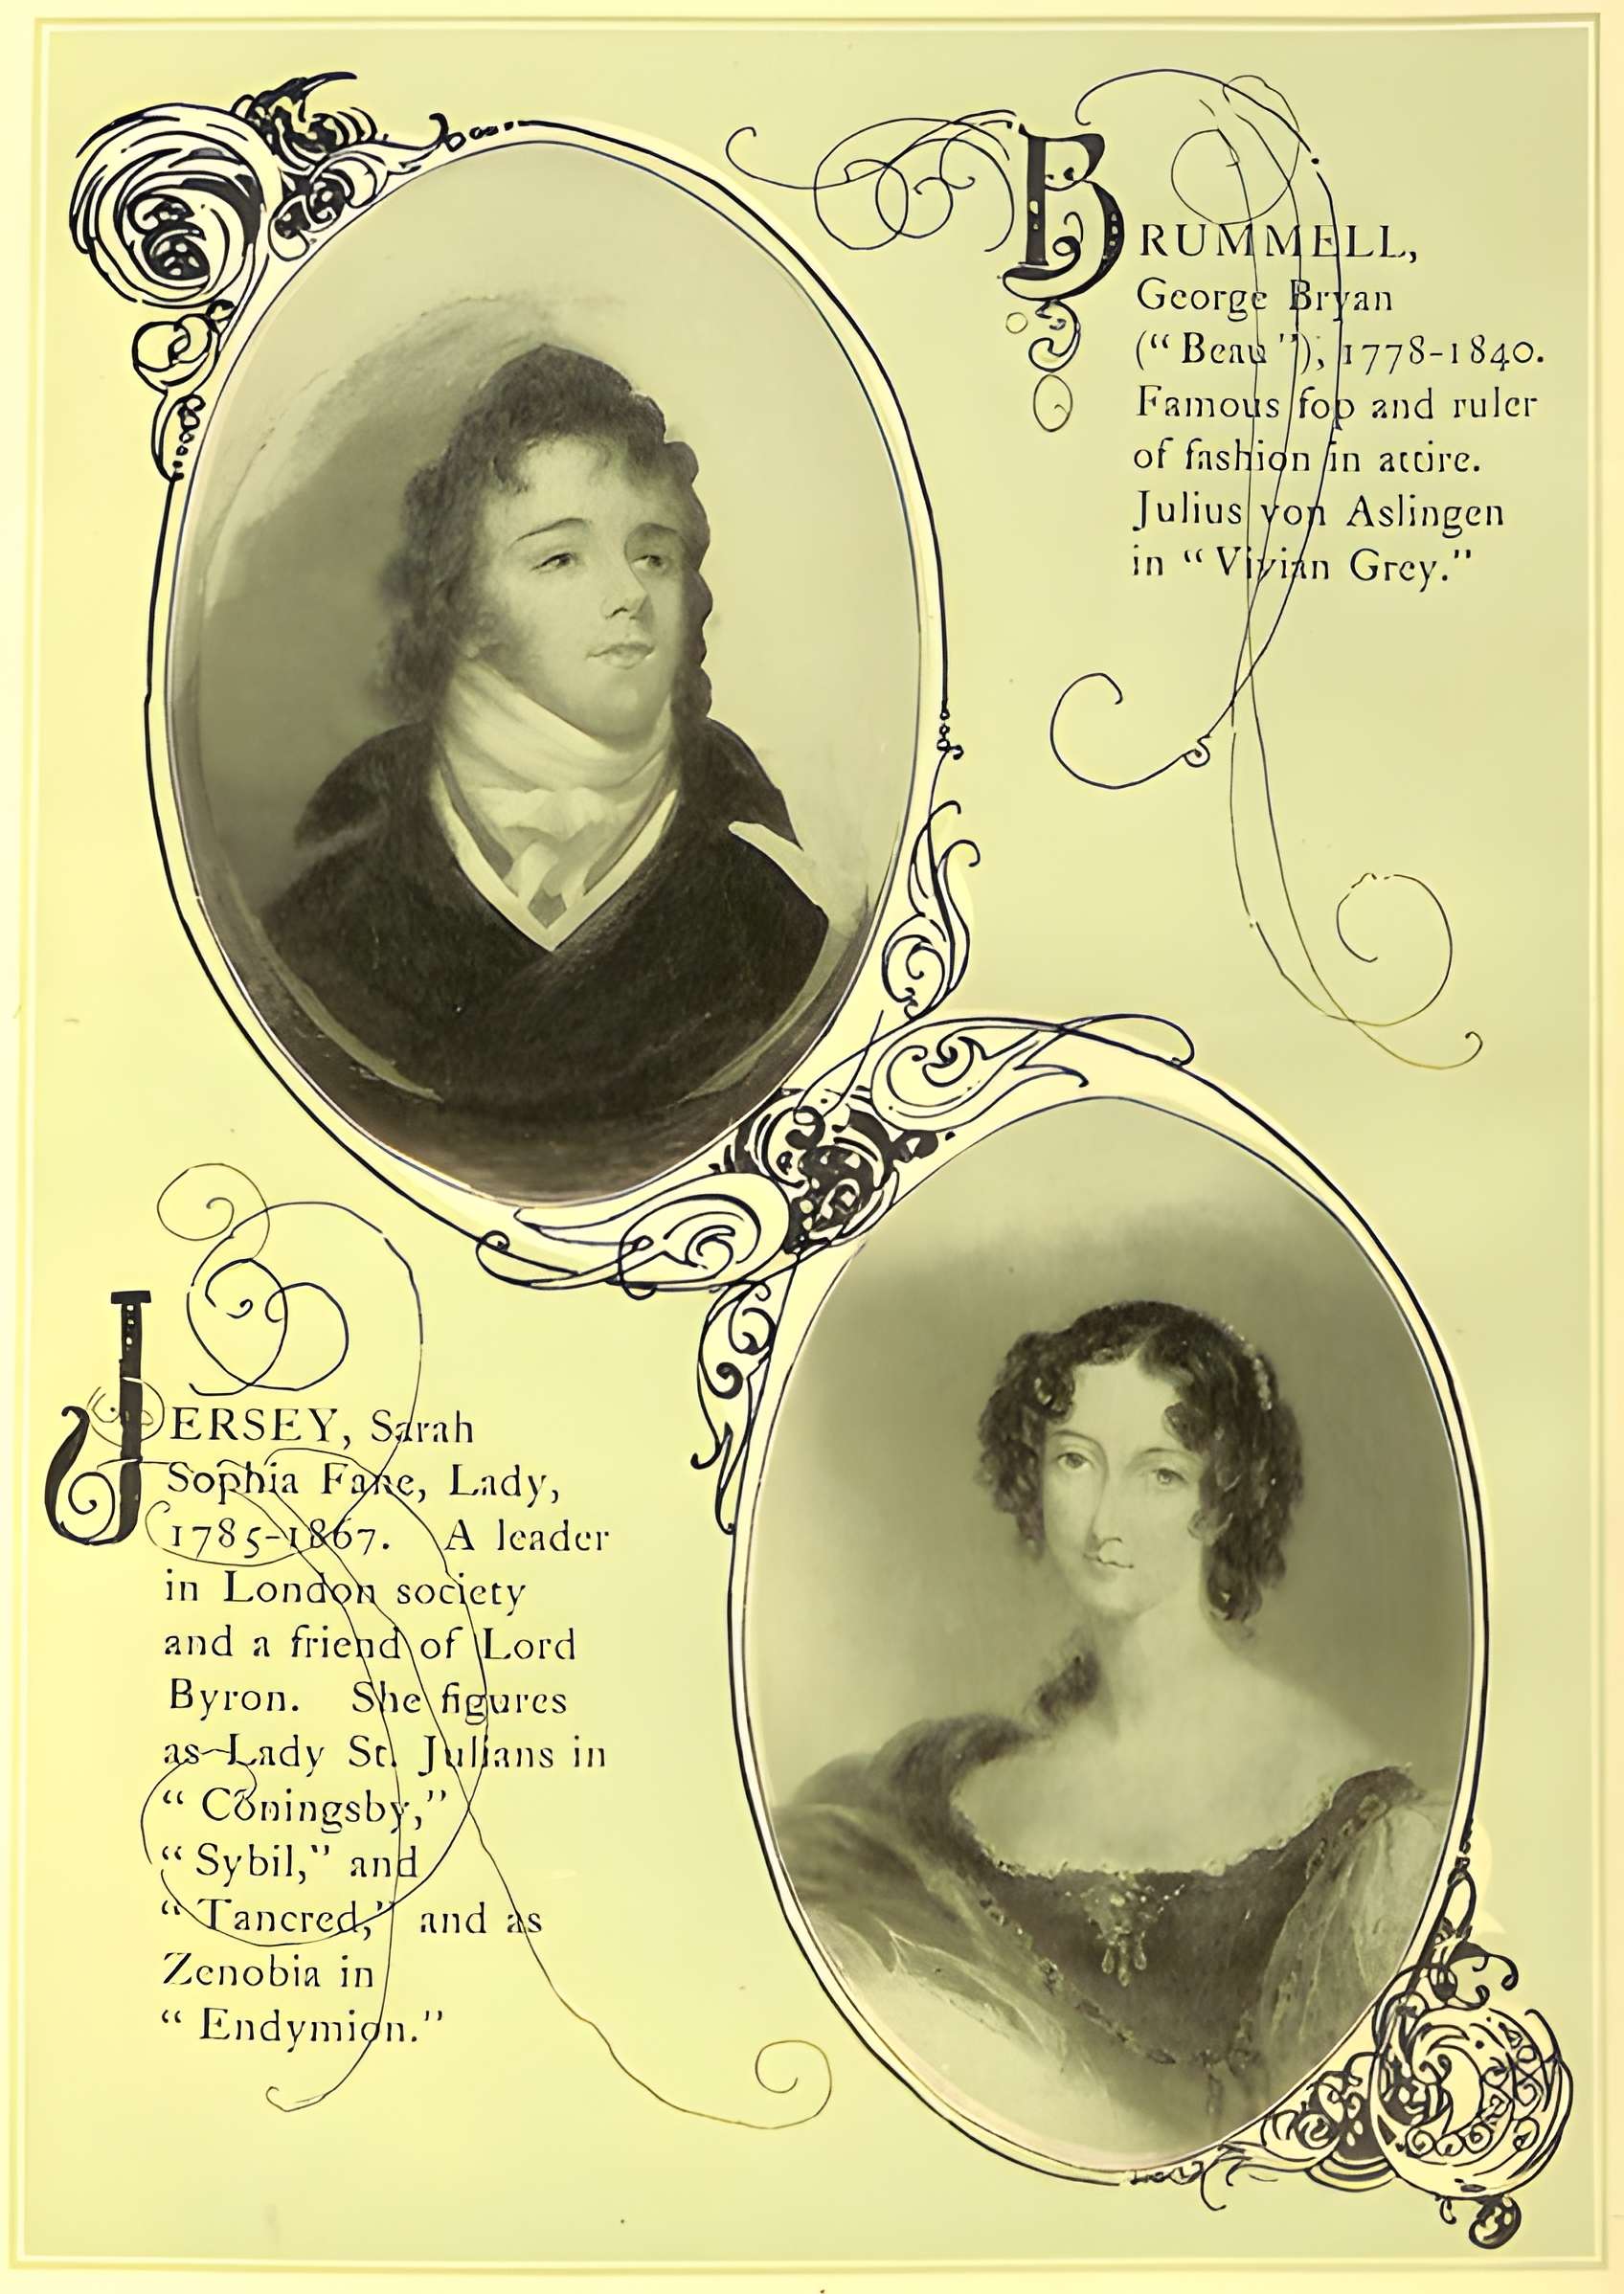 BRUMMELL,
George Bryan
(“Beau”), 1778-1840.
Famous fop and ruler
of fashion in attire.
Julius von Aslingen
in “Vivian Grey.”
JERSEY, Sarah
Sophia Fane, Lady,
1785-1867. A leader
in London society
and a friend of Lord
Byron. She figures
as Lady St. Julians in
“Coningsby,”
“Sybil,” and
“Tancred,” and as
Zenobia in
“Endymion.”